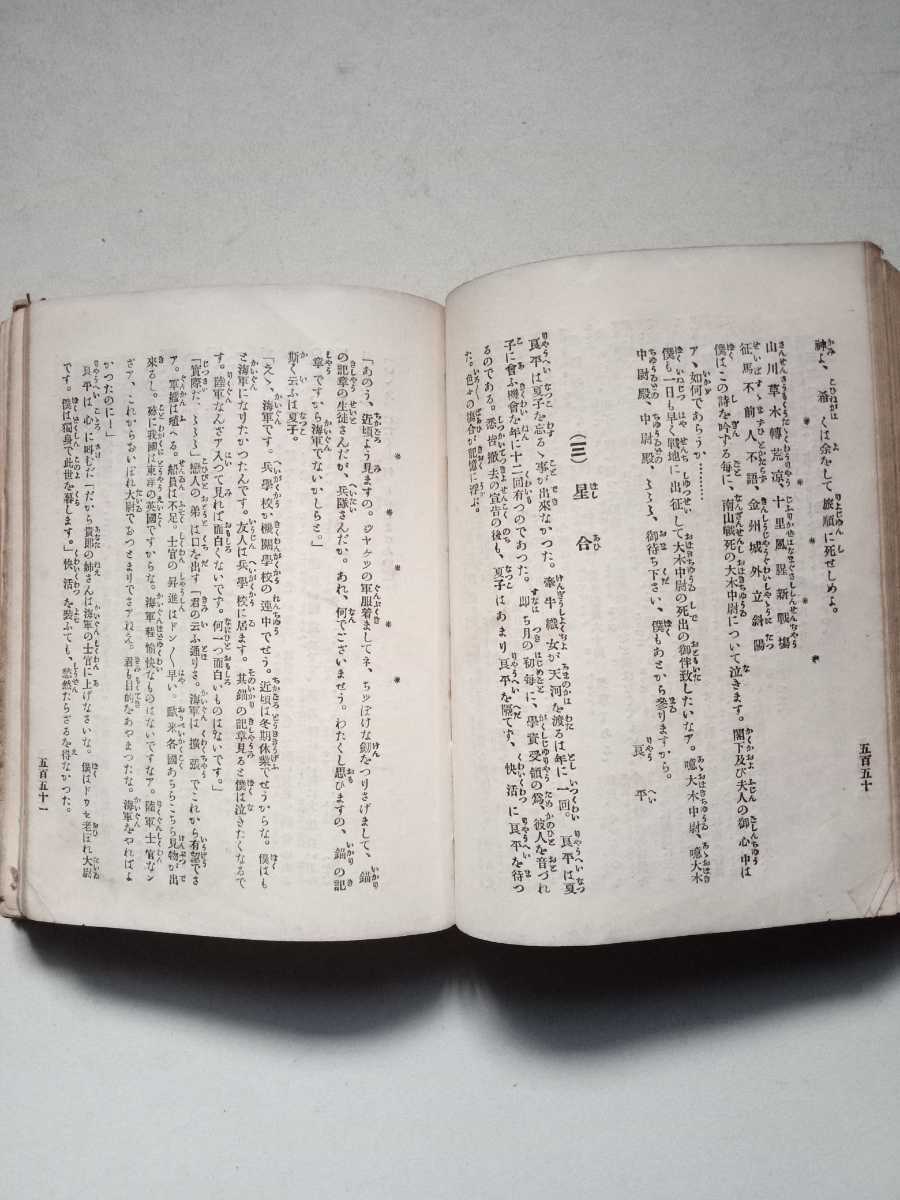 神よ、希くは余をして旅順に死せしめよ。
＊　＊　＊　＊
山川草木轉荒凉、十里風腥新戰塲
征馬不前人不語、金州城外立斜陽
僕はこの詩を吟ずる毎に、南山戰死の大木中尉について泣きます。閣下及び夫人の御心中は
アヽ如何であらうか………
僕も一日も早く戰地に出征して大木中尉の死出の御伴致したいなア。噫大木中尉、噫大木
中尉殿、中尉殿、〻〻〻、御待ち下さい、僕もあとから參りますから。
良平
（三）星合
良平は夏子を忘るゝ事が出來なかつた。牽牛織女が天河を渡るは年に一回。良平は夏
子に會ふ機會を年に十二回有つのであつた。即ち月の初毎に、學資受領の爲、彼人を音づれ
るのである。悉皆撤去の宣告の後も、夏子はあまり良平を隔てず、快活に良平を待つ
た。色々の塲合が記憶に浮ぶ。
五百五十
＊　＊　＊　＊
「あのう、近頃よう見ますの。ジヤケツの軍服着ましてネ、ちッぽけな劒をつりさげまして、錨
の記章の生徒さんだが、兵隊さんだか。あれ、何でございませう。わたくし思ひますの、錨の記
章ですから海軍でないかしらと。」
斯く云ふは夏子。
「えゝ、海軍です。兵學校か機關學校の連中でせう。近頃は冬期休業でせうからな。僕はも
と海軍になりたかつたんです。友人は兵學校に居ます。其錨の記章見ると僕は泣きたくなるで
す。陸軍なんざア入つて見れば面白くないです。何一つ面白いものはないです。」
「實際だ、〻〻〻」戀人の弟は口を出す「君の云ふ通りさ。海軍は擴張でこれから有望でさ
ア。軍艦は殖へる。船員は不足。士官の昇進はドン〱早い。歐米各國あちらこちら見物が出
來るし。殊に我國は東洋の英國ですからな。海軍程愉快なものはないですなア。陸軍士官なン
ざア、これからおいぼれ大尉でるつとまりでさアねえ。君も目的をあやまつたな。海軍をやればよ
かつたのにー」
良平は心に叫むだ「だから貴郎の姉さんは海軍の士官に上げなさいな。僕はドウセ老ぼれ大尉
です。僕は獨身で此世を暮します。」快活を裝ふても、愁然たらざるを得なかつた。
五百五十一